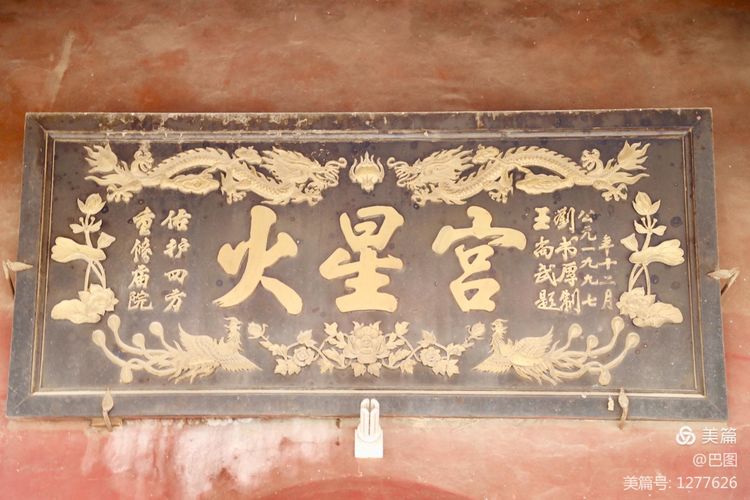 火星宫
公元一九九七
年十二月
劉书厚制
王尚武题
佑护四方
重修庙院
美篇
@巴图
美篇号: 1277626